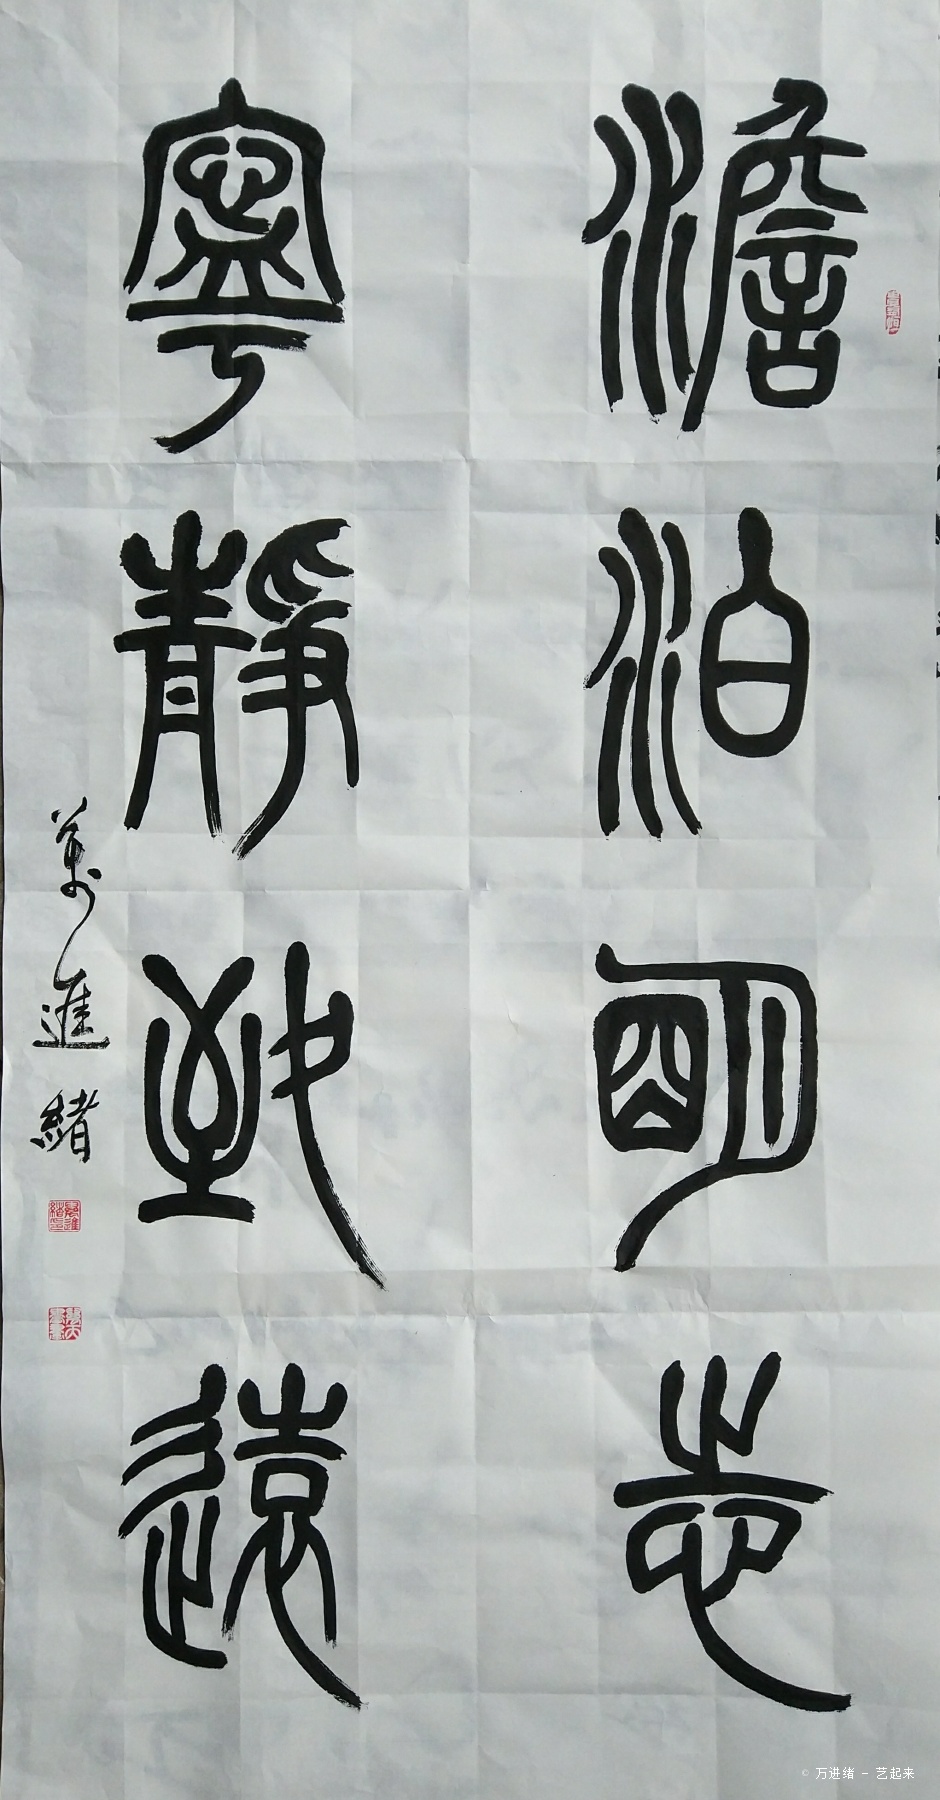 澹泊朙志
寧靜致遠
萬進緒
© 万进绪 - 艺起来